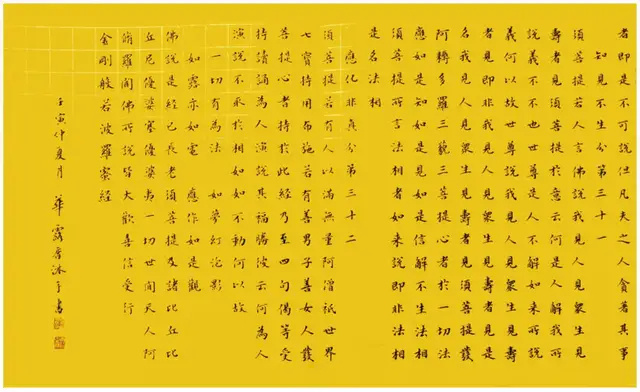 者即是不可說但凡夫之人貪著其事
知見不生分第三十一
須菩提若人言佛說我見人見眾生見
壽者見須菩提於意云何是人解我所
說義不不也世尊是人不解如來所說
義何以故世尊說我見人見眾生見壽
者見即非我見人見眾生見壽者見是
名我見人見眾生見壽者見須菩提發
阿耨多羅三藐三菩提心者於一切法
應如是知如是見如是信解不生法相
須菩提所言法相者如來說即非法相
是名法相
應化非真分第三十二
須菩提若有人以滿無量阿僧祇世界
七寶持用布施若有善男子善女人發
菩提心者持於此經乃至四句偈等受
持讀誦為人演說其福勝彼云何為人
演說不取於相如如不動何以故
一切有為法 如夢幻泡影
如露亦如電 應作如是觀
佛說是經已長老須菩提及諸比丘比
丘尼優婆塞優婆夷一切世間天人阿
脩羅聞佛所說皆大歡喜信受奉行
金剛般若波羅蜜經
壬寅仲夏月 華露 沐手書